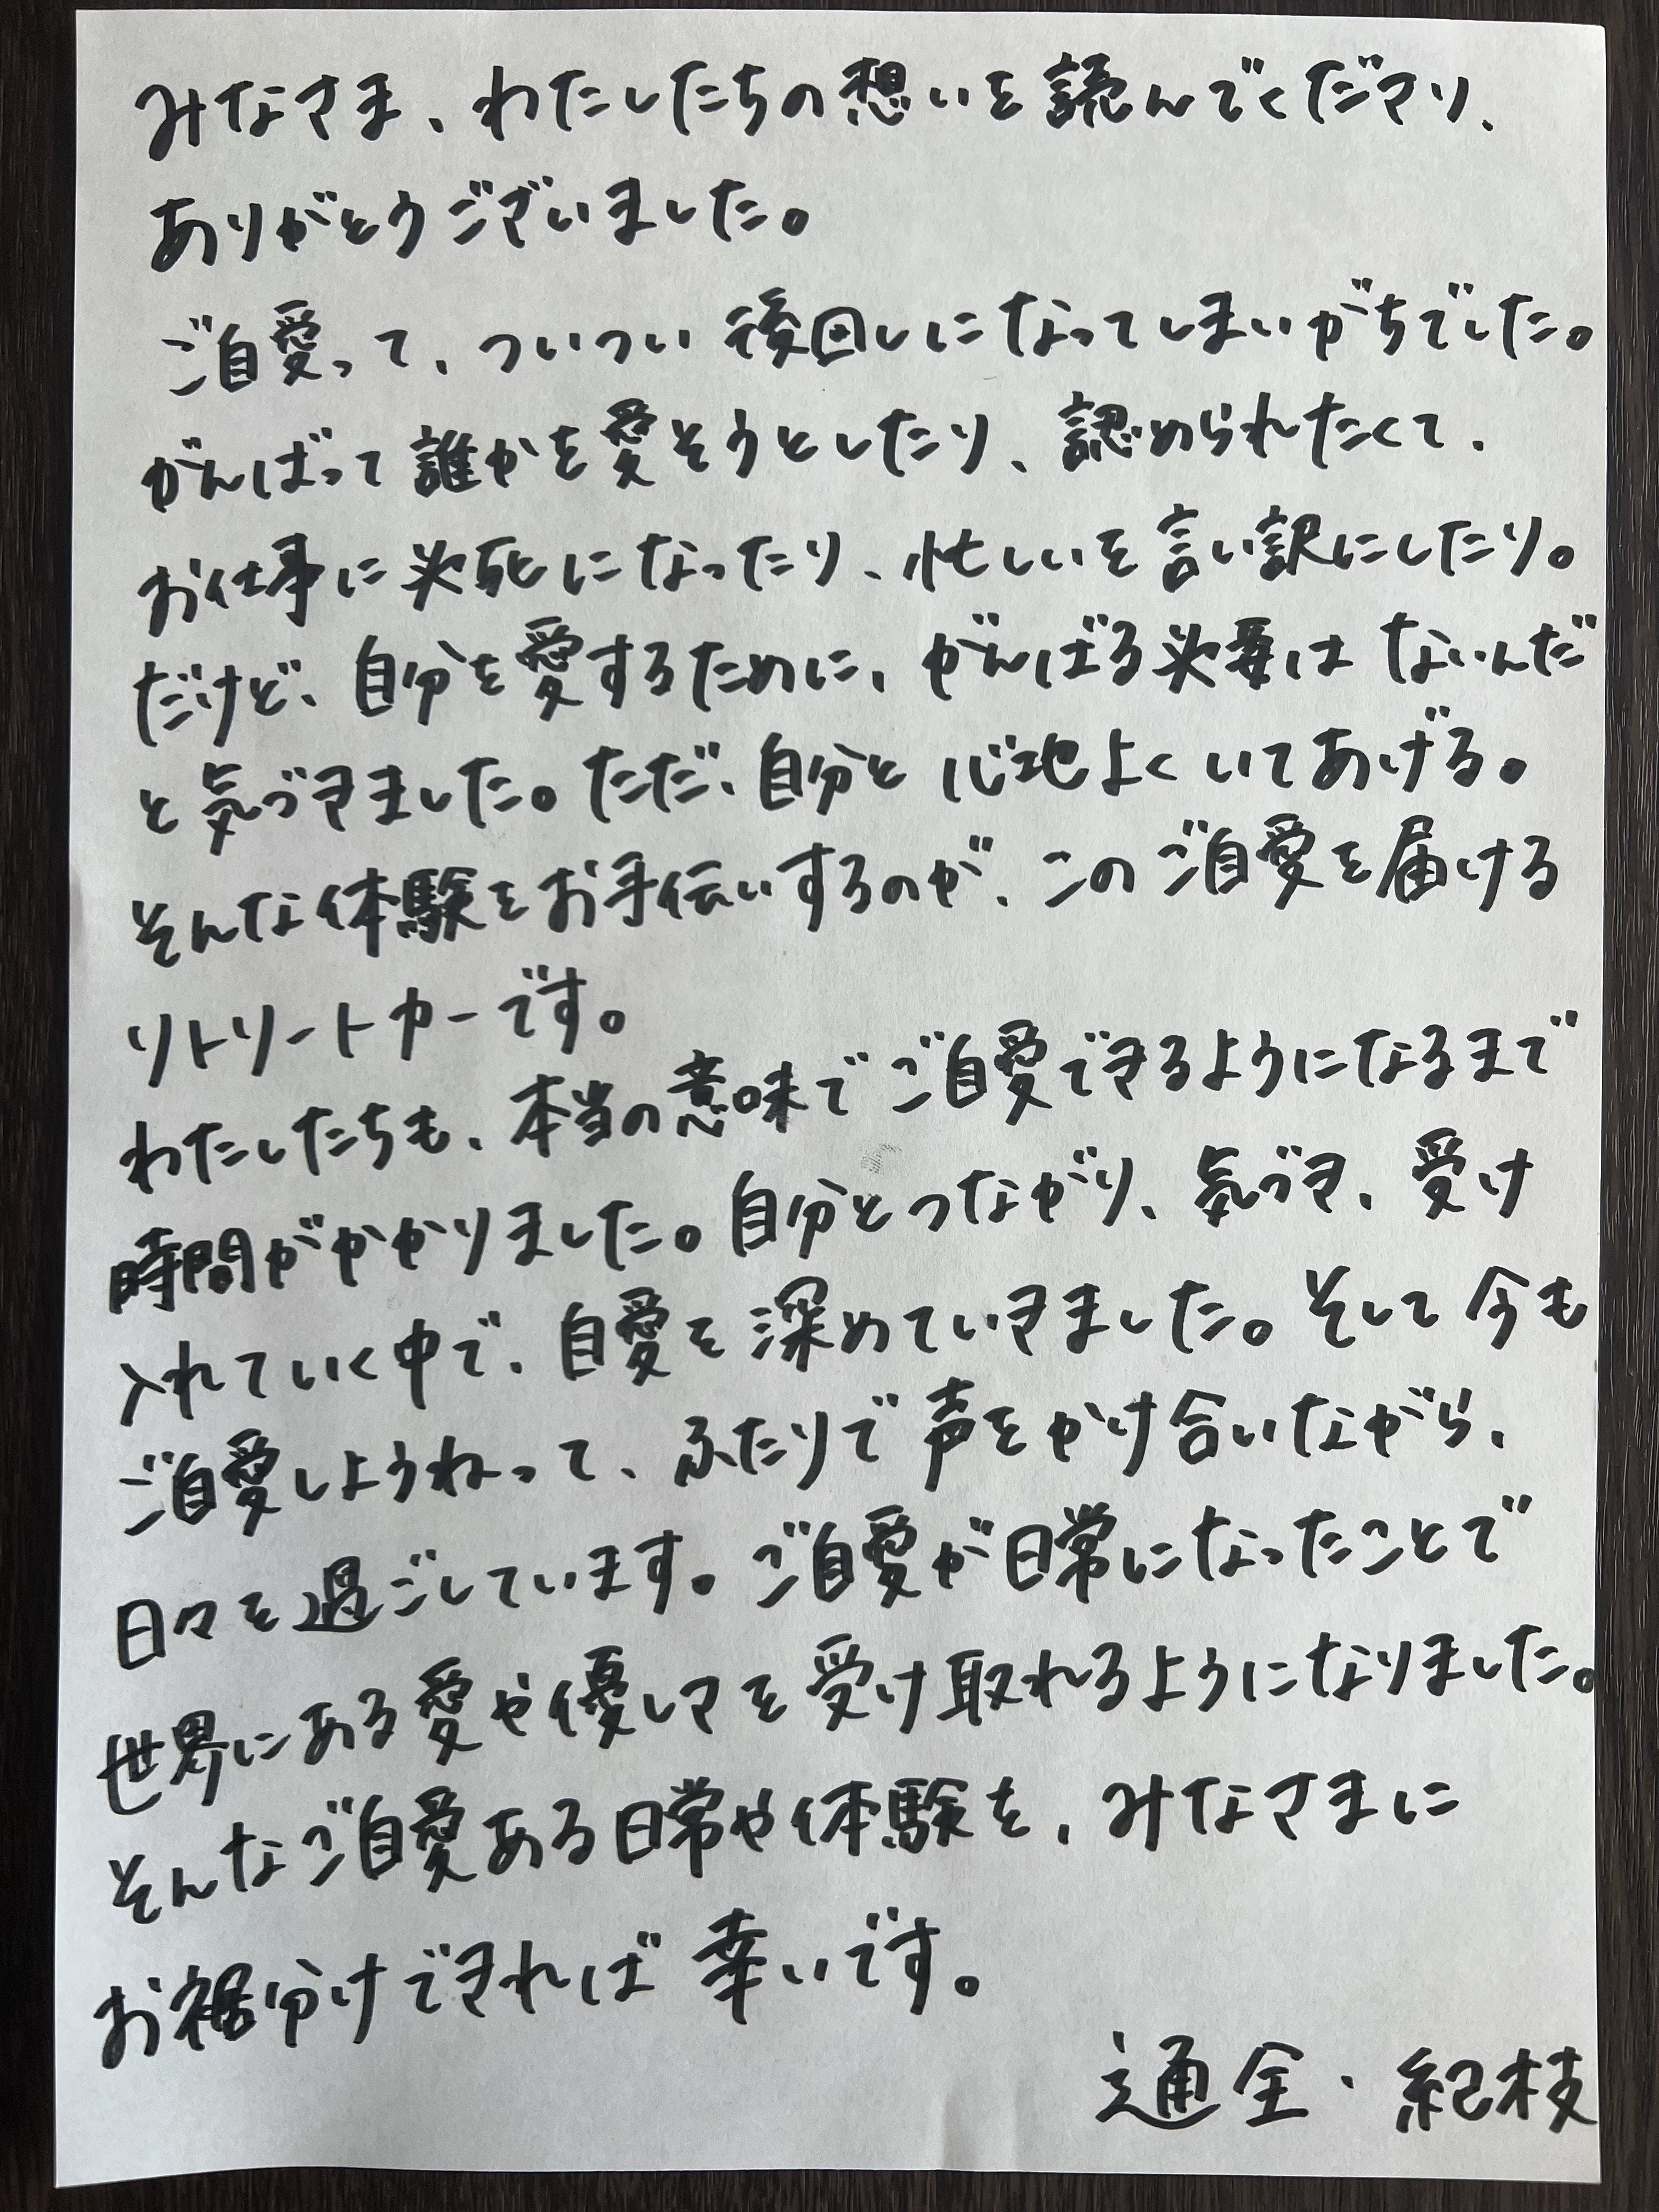 みなさま、わたしたちの想いを読んでくださり、
ありがとうございました。
ご自愛って、ついつい後回しになってしまいがちでした。
がんばって誰かを愛そうとしたり、認められたくて、
お仕事に必死になったり、忙しいを言い訳にしたり。
だけど、自分を愛するために、がんばる必要はないんだ
と気づきました。ただ、自分と心地よくいてあげる。
そんな体験をお手伝いするのが、このご自愛を届ける
リトリートカーです。
わたしたちも、本当の意味でご自愛できるようになるまで
時間がかかりました。自分とつながり、気づき、受け
入れていく中で、自愛を深めていきました。そして今も
ご自愛しようねって、ふたりで声をかけ合いながら、
日々を過ごしています。ご自愛が日常になったことで
世界にある愛や優しさを受け取れるようになりました。
そんなご自愛ある日常や体験を、みなさまに
お裾分けできれば幸いです。
通全・紀枝